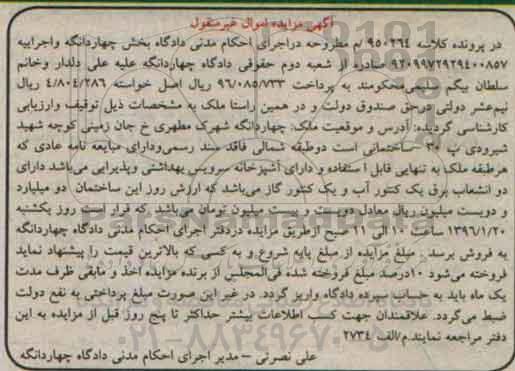 آگهی مزایده اموال غیرمنقول
در پرونده کلاسه ۹۵۰۲۶۴ /م مطروحه دراجرای احکام مدنی دادگاه بخش چهاردانگه واجراییه
۹۲۰۹۹۷۲۹۲۹۴۰۰۸۵۷ صادره از شعبه دوم حقوقی دادگاه چهاردانگه علیه علی دلدار وخانم
سلطان بیگم سلیمی محکومند به پرداخت ۹۶/۰۸۵/۷۳۳ ریال اصل خواسته ۴/۸۰۴/۲۸۶ ریال
نیم عشر دولتی درحق صندوق دولت و در همین راستا ملک به مشخصات ذیل توقیف وارزیابی
کارشناسی گردیده: آدرس و موقعیت ملک: چهاردانگه شهرک مطهری خ جان زمینی کوچه شهید
شیرودی پ ۳۰ ساختمانی است دوطبقه شمالی فاقد سند رسمی ودارای مبایعه نامه عادی که
هرطبقه ملک به تنهایی قابل استفاده و دارای آشپزخانه سرویس بهداشتی وپذیرایی می باشد دارای
دو انشعاب برق یک کنتور آب و یک کنتور گاز می باشد که ارزش روز این ساختمان دو میلیارد
و دویست میلیون ریال معادل دویست و بیست میلیون تومان می باشد که قرار است روز یکشنبه
۱۳۹۶/۱/۲۰ ساعت ۱۰ الی ۱۱ صبح ازطریق مزایده دردفتر اجرای احکام مدنی دادگاه چهاردانگه
به فروش برسد. مبلغ مزایده از مبلغ پایه شروع و به کسی که بالاترین قیمت را پیشنهاد نماید
فروخته می شود ۱۰درصد مبلغ فروخته شده فی المجلس از برنده مزایده اخذ و مابقی ظرف مدت
یک ماه باید به حساب سپرده دادگاه واریز گردد. در غیر این صورت مبلغ پرداختی به نفع دولت
ضبط می گردد. علاقمندان جهت کسب اطلاعات بیشتر حداکثر تا پنج روز قبل از مزایده به این
دفتر مراجعه نمایند.م/الف ۲۷۳۴
علی نصرتی – مدیر اجرای احکام مدنی دادگاه چهاردانگه